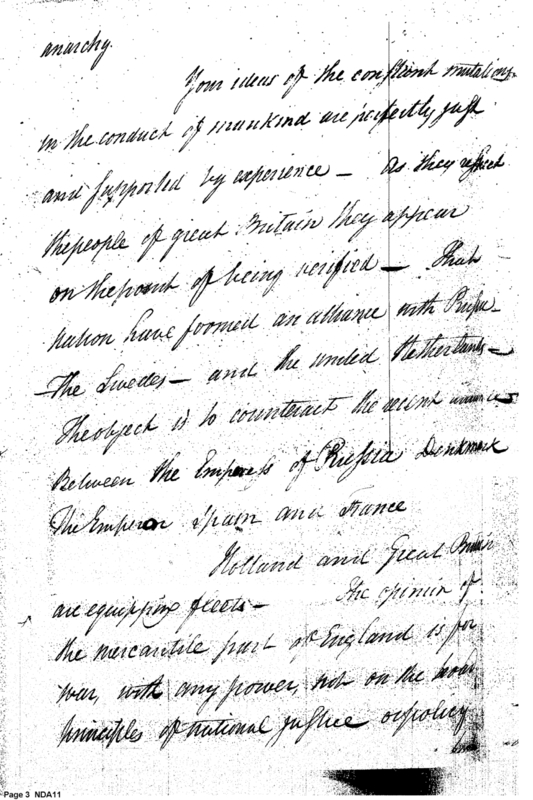 anarchy.
Your ideas of the constant mutations
in the conduct of mankind are perfectly just
and supported by experience — As they respect
the people of great Britain they appear
on the point of being verified — That
nation have foomed an alliance with Prusia
The Swedes — and the united Netherlands —
The object is to counteract the recent
Between the Empress of Russia Denkmark
The Emperor Spain and France
Holland and Great Britain
are equipping fleets — The opinion of
the mercantile part of England is for
war, with any power, not on the broad
principles of national justice or policy
Page 3 NDA11